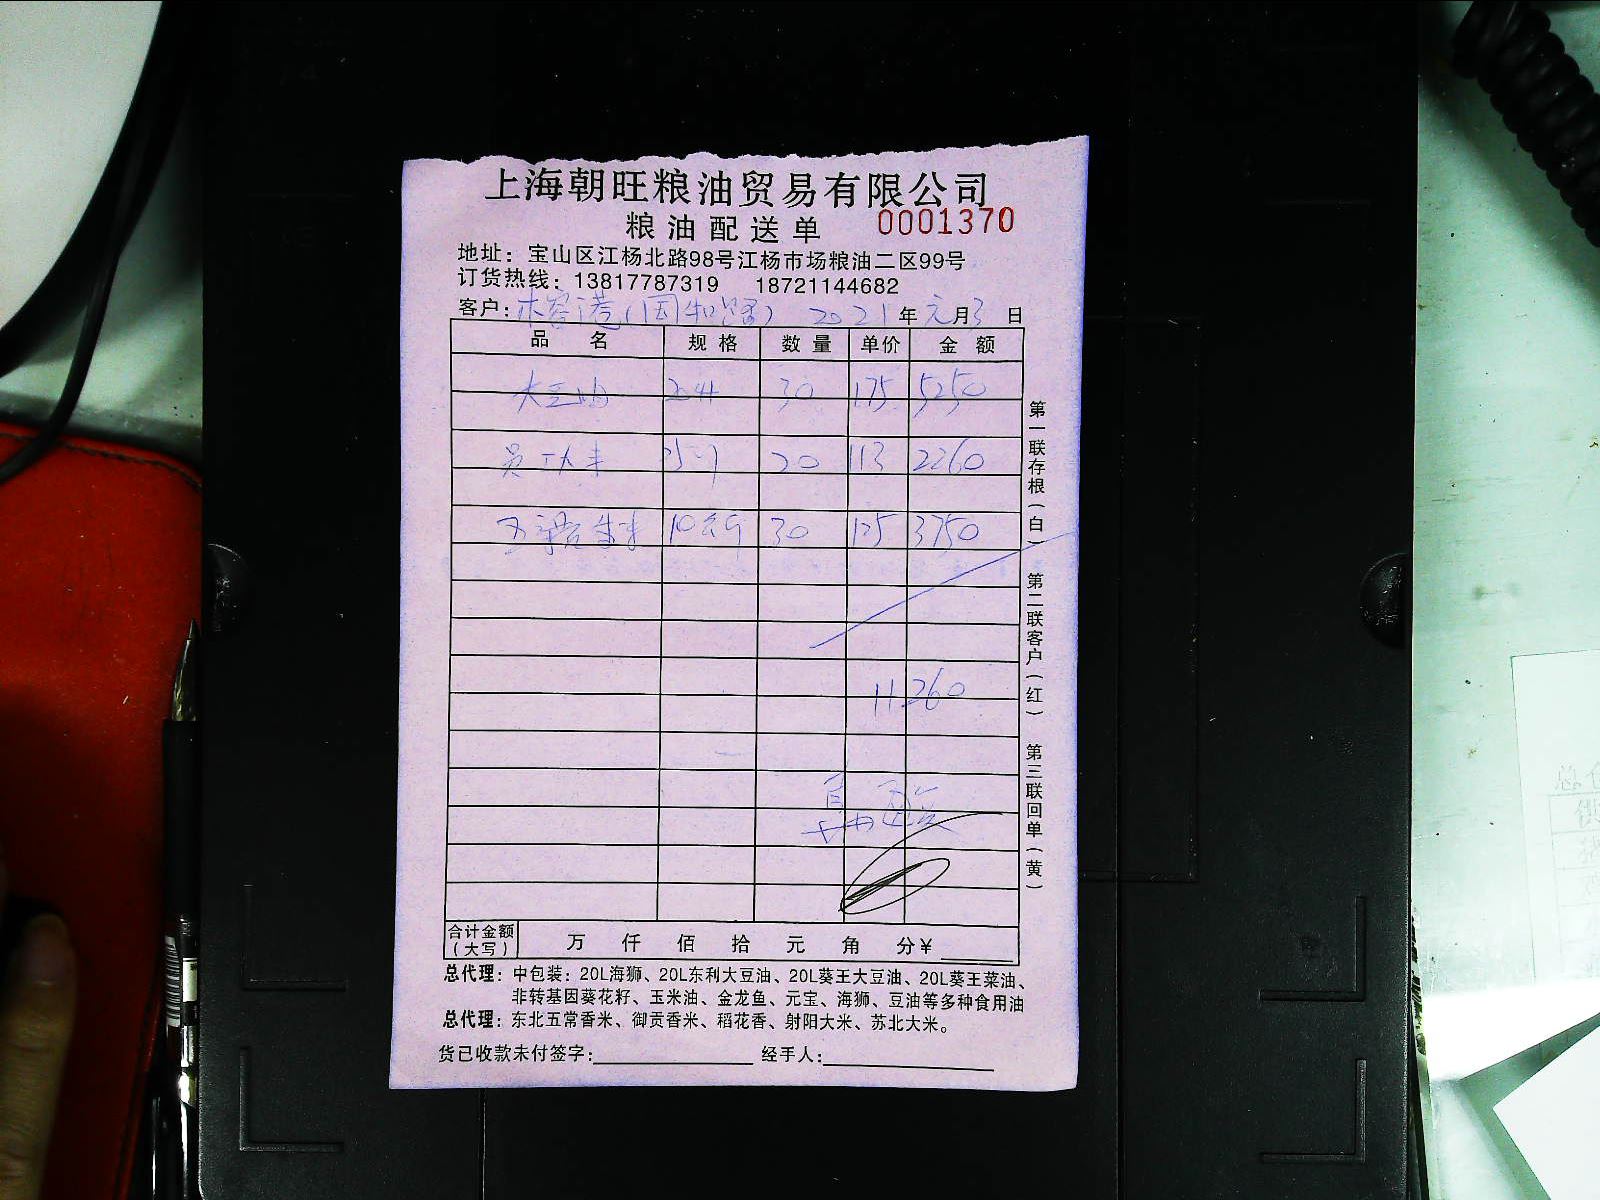 上海朝旺粮油贸易有限公司
粮油配送单 0001370
地址：宝山区江杨北路98号江杨市场粮油二区99号
订货热线：13817787319 18721144682
客户：木容港(国和路) 2021年元月3日
品名 规格 数量 单价 金额
大豆油 20升 30 175 5250
20 113 2260
30 125 3750
11260
第一联存根（白） 第二联客户（红） 第三联回单（黄）
合计金额（大写） 万 仟 佰 拾 元 角 分¥
总代理：中包装：20L海狮、20L东利大豆油、20L葵王大豆油、20L葵王菜油、
非转基因葵花籽、玉米油、金龙鱼、元宝、海狮、豆油等多种食用油
总代理：东北五常香米、御贡香米、稻花香、射阳大米、苏北大米。
货已收款未付签字： 经手人：